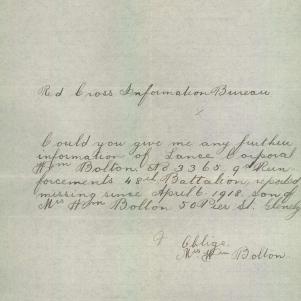 Red Cross Information Bureau
Could you give me any further
information of Lance Corporal
Wm Bolton. No 3365. 9th Rein
forcements 48th Battalion, reported
missing since April 6. 1918. Son of
Mrs Wm Bolton 50 Pier St. Glenelg
Oblige
Mrs Wm Bolton